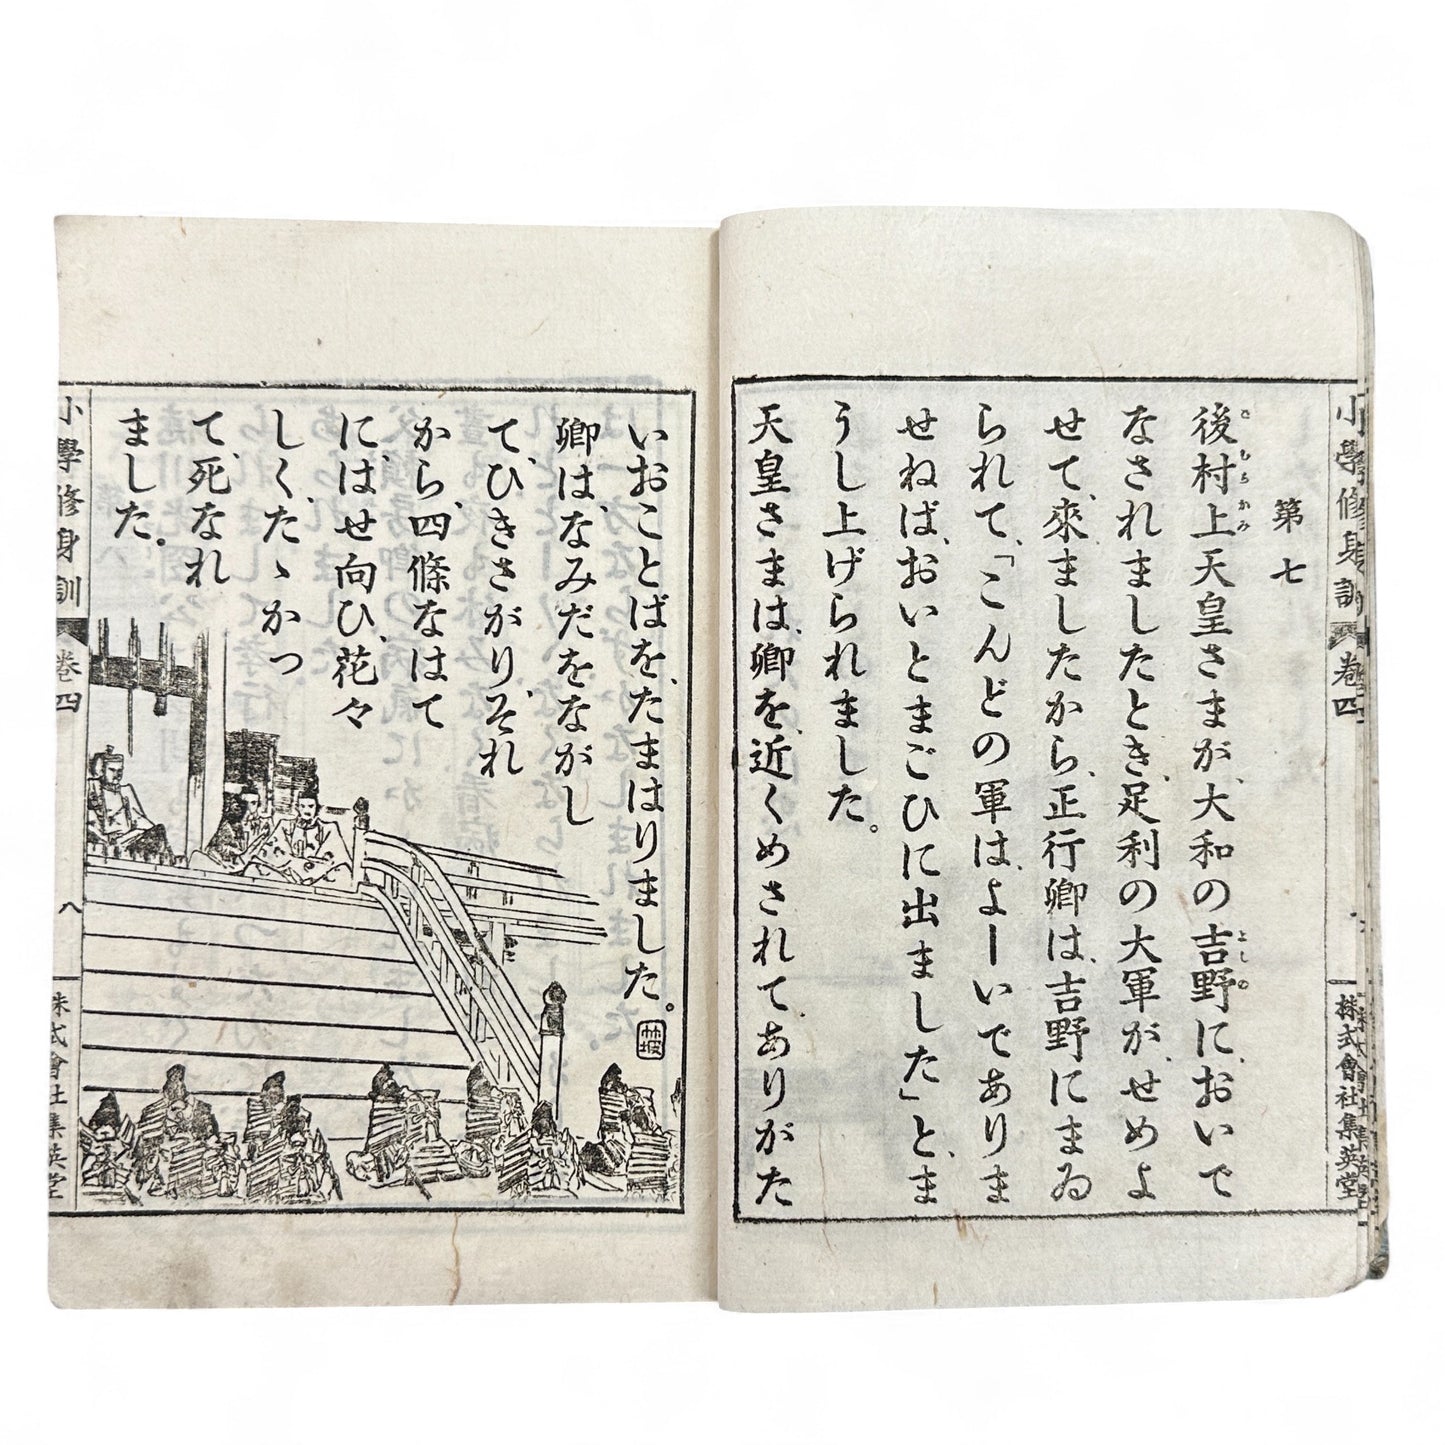 小學修身訓 卷四
株式會社集英堂
第七
後村上天皇さまが、大和の吉野に、おいで
なされましたとき、足利の大軍が、せめよ
せて、來ましたから、正行卿は、吉野にまゐ
られて、「こんどの軍は、よーいでありま
せねば、おいとまごひに出ました」と、ま
うし上げられました。
天皇さまは、卿を、近くめされてありがた
いおことばを、たまはりました。
卿は、なみだをながし
て、ひきさがり、それ
から、四條なはて
に、ば、せ向ひ、花々
しく、たゝかつ
て、死なれ
ました。
小學修身訓 卷四
八
株式會社集英堂